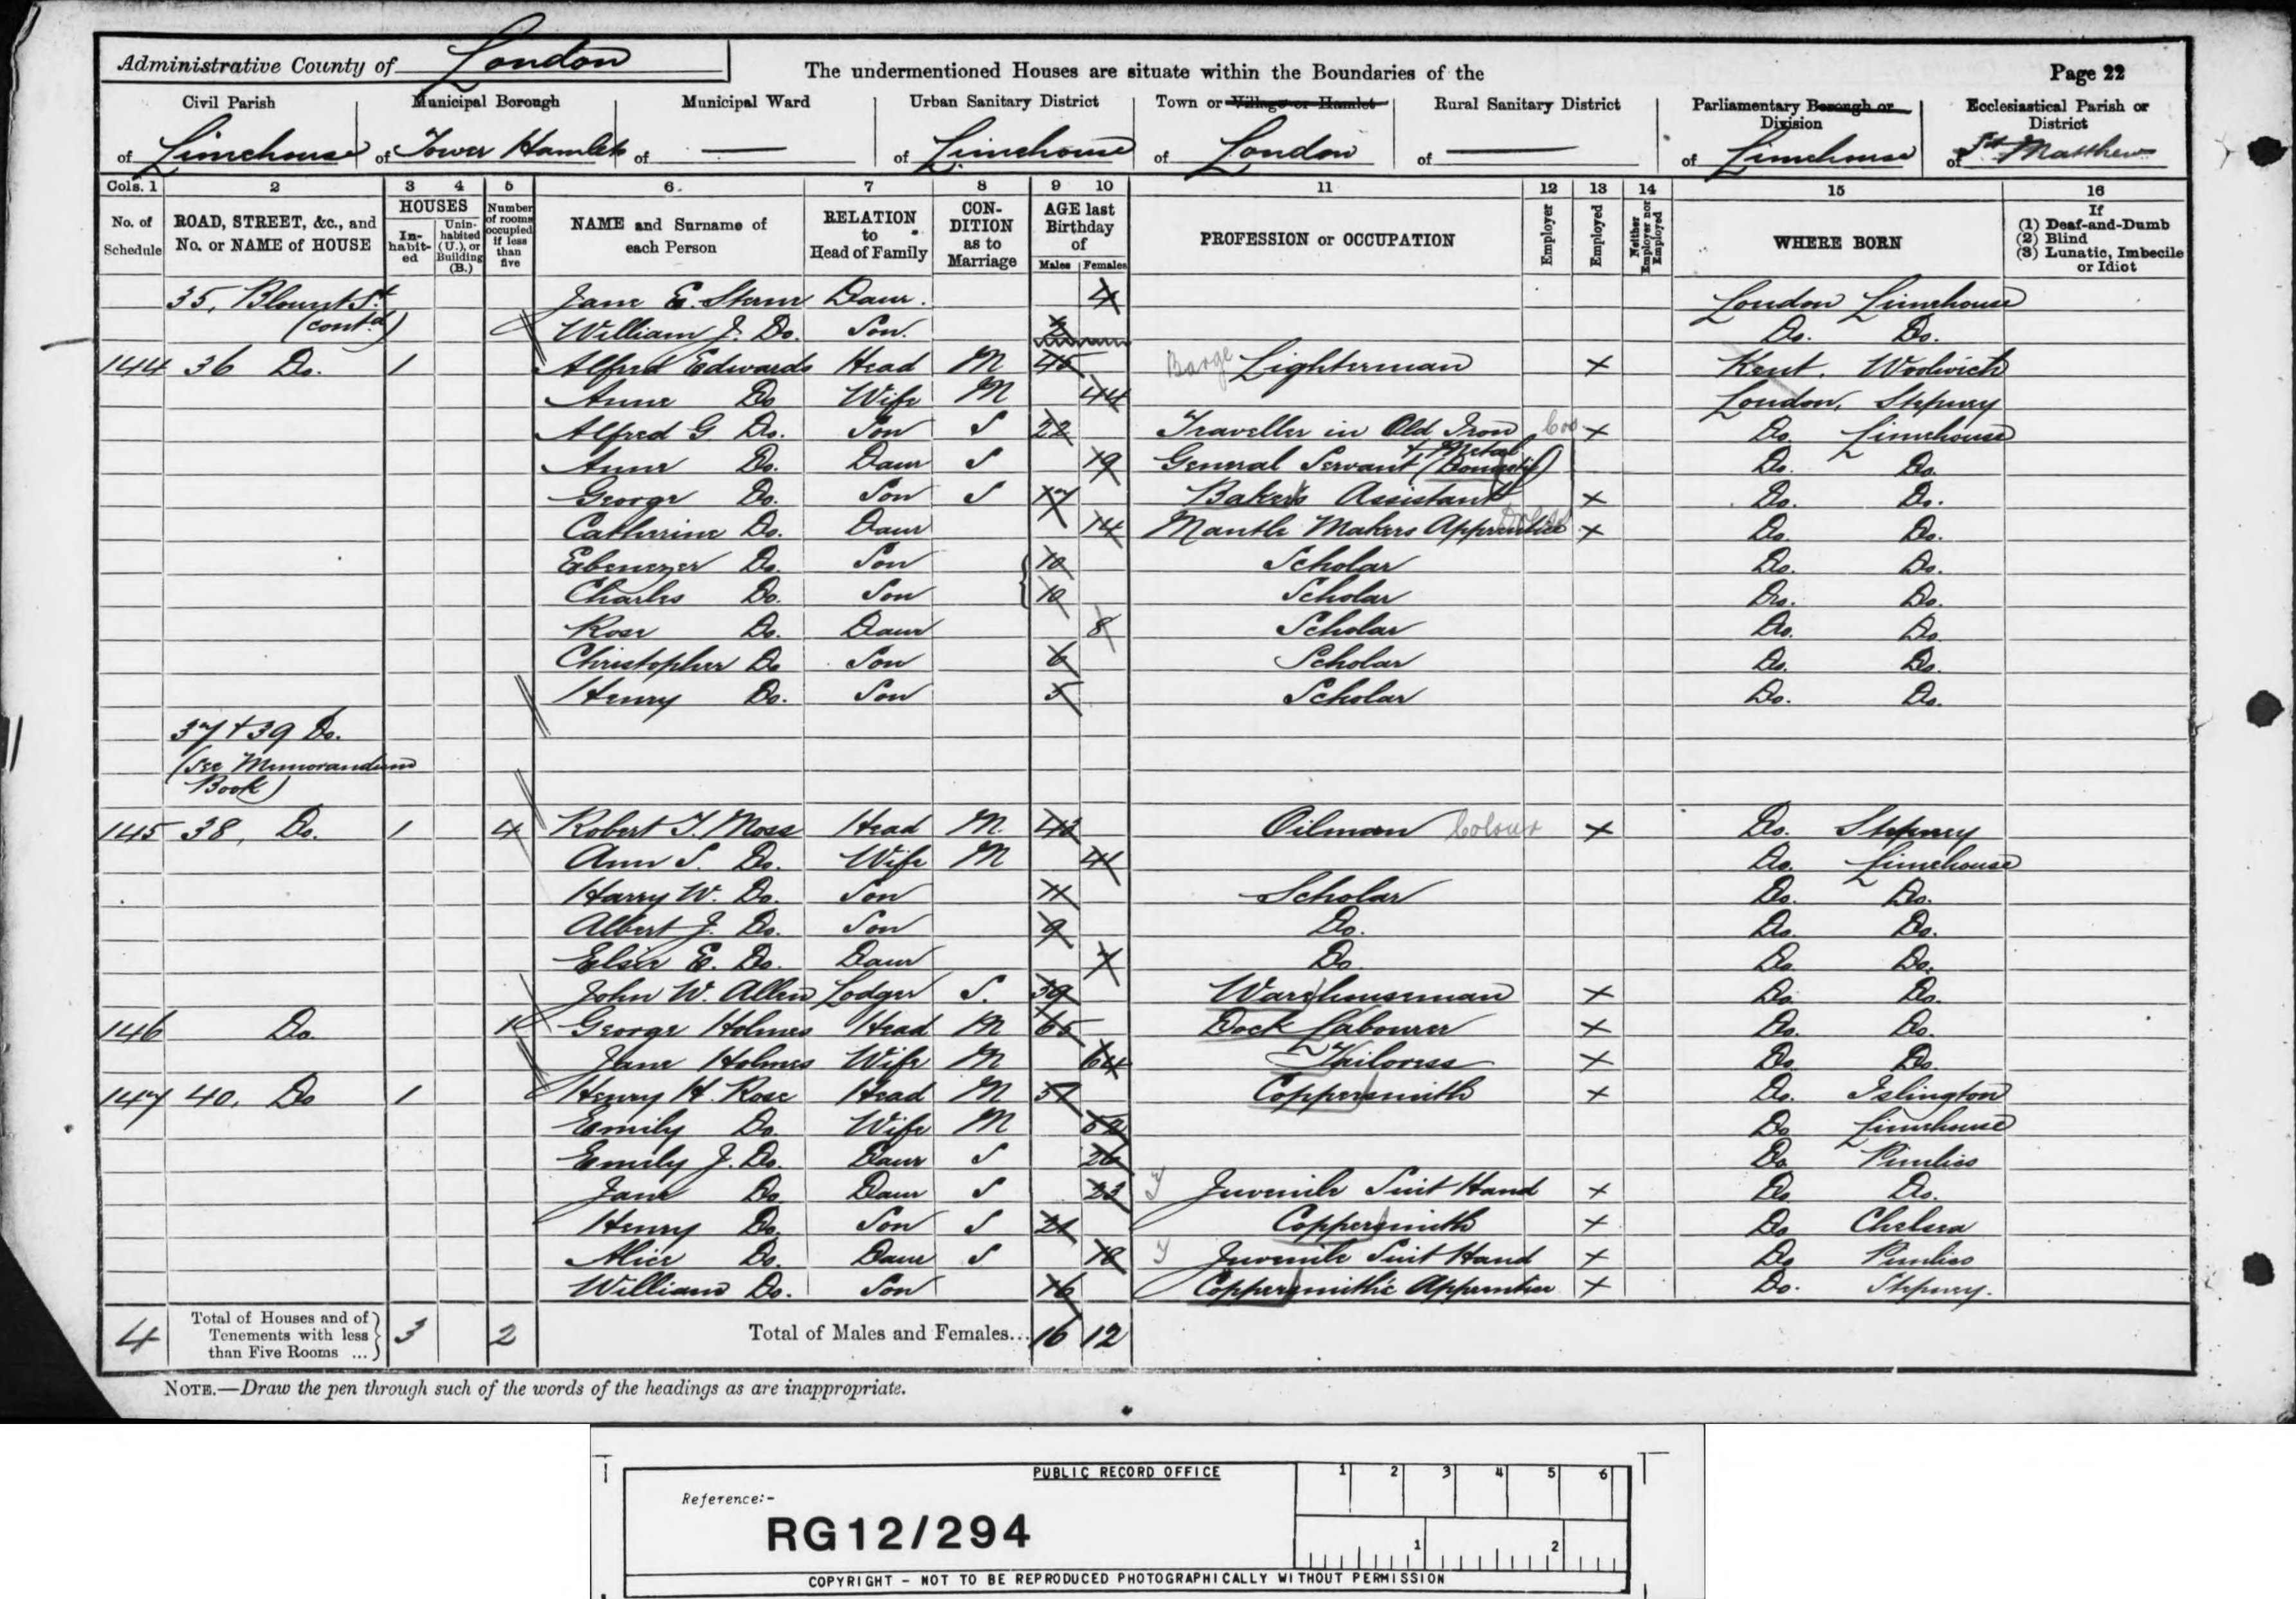 Administrative County of London
The undermentioned Houses are situate within the Boundaries of the
Page 22
Civil Parish of Limehouse
Municipal Borough of Tower Hamlets
Municipal Ward of —
Urban Sanitary District of Limehouse
Town or Village or Hamlet of London
Rural Sanitary District of —
Parliamentary Borough or Division of Limehouse
Ecclesiastical Parish or District of St Matthew
Cols. 1 2 3 4 5 6. 7 8 9 10 11 12 13 14 15 16
No. of Schedule
ROAD, STREET, &c., and No. or NAME of HOUSE
HOUSES
In-habit-ed
Unin-habited (U.), or Building (B.)
Number of rooms occupied if less than five
NAME and Surname of each Person
RELATION to Head of Family
CON-DITION as to Marriage
AGE last Birthday of
Males Females
PROFESSION or OCCUPATION
Employer
Employed
Neither Employer nor Employed
WHERE BORN
If
(1) Deaf-and-Dumb
(2) Blind
(3) Lunatic, Imbecile or Idiot
35, Blount St. Jane E. Daur. 4 London Limehouse
(contd) William J. Do. Son. 2 Do. Do.
144 36 Do. 1 Alfred Edwards Head M 45 Barge Lighterman X Kent. Woolwich
Anne Do Wife M 44 London, Stepney
Alfred G Do. Son S 22 Traveller in Old Iron X Do. Limehouse
& Metal
Anne Do. Daur S 19 General Servant (Domestic) Do. Do.
George Do. Son S 17 Bakers Assistant X Do. Do.
Catherine Do. Daur 14 Mantle Makers Apprentice X Do. Do.
Ebenezer Do. Son 10 Scholar Do. Do.
Charles Do. Son 10 Scholar Do. Do.
Rose Do. Daur 8 Scholar Do. Do.
Christopher Do Son 6 Scholar Do. Do.
Henry Do. Son 5 Scholar Do. Do.
37 + 39 Do.
(See Memorandum
Book)
145 38, Do. 1 4 Robert T. Moss Head M. 43 Oilman Colour X Do. Stepney
Ann S. Do. Wife M 41 Do. Limehouse
Harry W. Do. Son 11 Scholar Do. Do.
Albert J. Do. Son 9 Do. Do. Do.
Elsie E. Do. Daur 7 Do Do. Do.
John W. Allen Lodger S. 39 Warehouseman X Do. Do.
146 Do. 1 George Holmes Head M 65 Dock Labourer X Do. Do.
Jane Holmes Wife M 64 Tailoress X Do. Do.
147 40, Do 1 Henry H. Rose Head M 51 Coppersmith X Do. Islington
Emily Do. Wife M 52 Do Limehouse
Emily J. Do. Daur S 26 Do Pimlico
Jane Do. Daur S 23 Juvenile Suit Hand X Do. Do.
Henry Do. Son S 21 Coppersmith X Do Chelsea
Alice Do. Daur S 18 Juvenile Suit Hand X Do Pimlico
William Do. Son 16 Coppersmith's Apprentice X Do. Stepney.
4 Total of Houses and of Tenements with less than Five Rooms ... 3 2 Total of Males and Females... 16 12
NOTE.—Draw the pen through such of the words of the headings as are inappropriate.
PUBLIC RECORD OFFICE
1 2 3 4 5 6
Reference:-
RG12/294
1 2
COPYRIGHT - NOT TO BE REPRODUCED PHOTOGRAPHICALLY WITHOUT PERMISSION